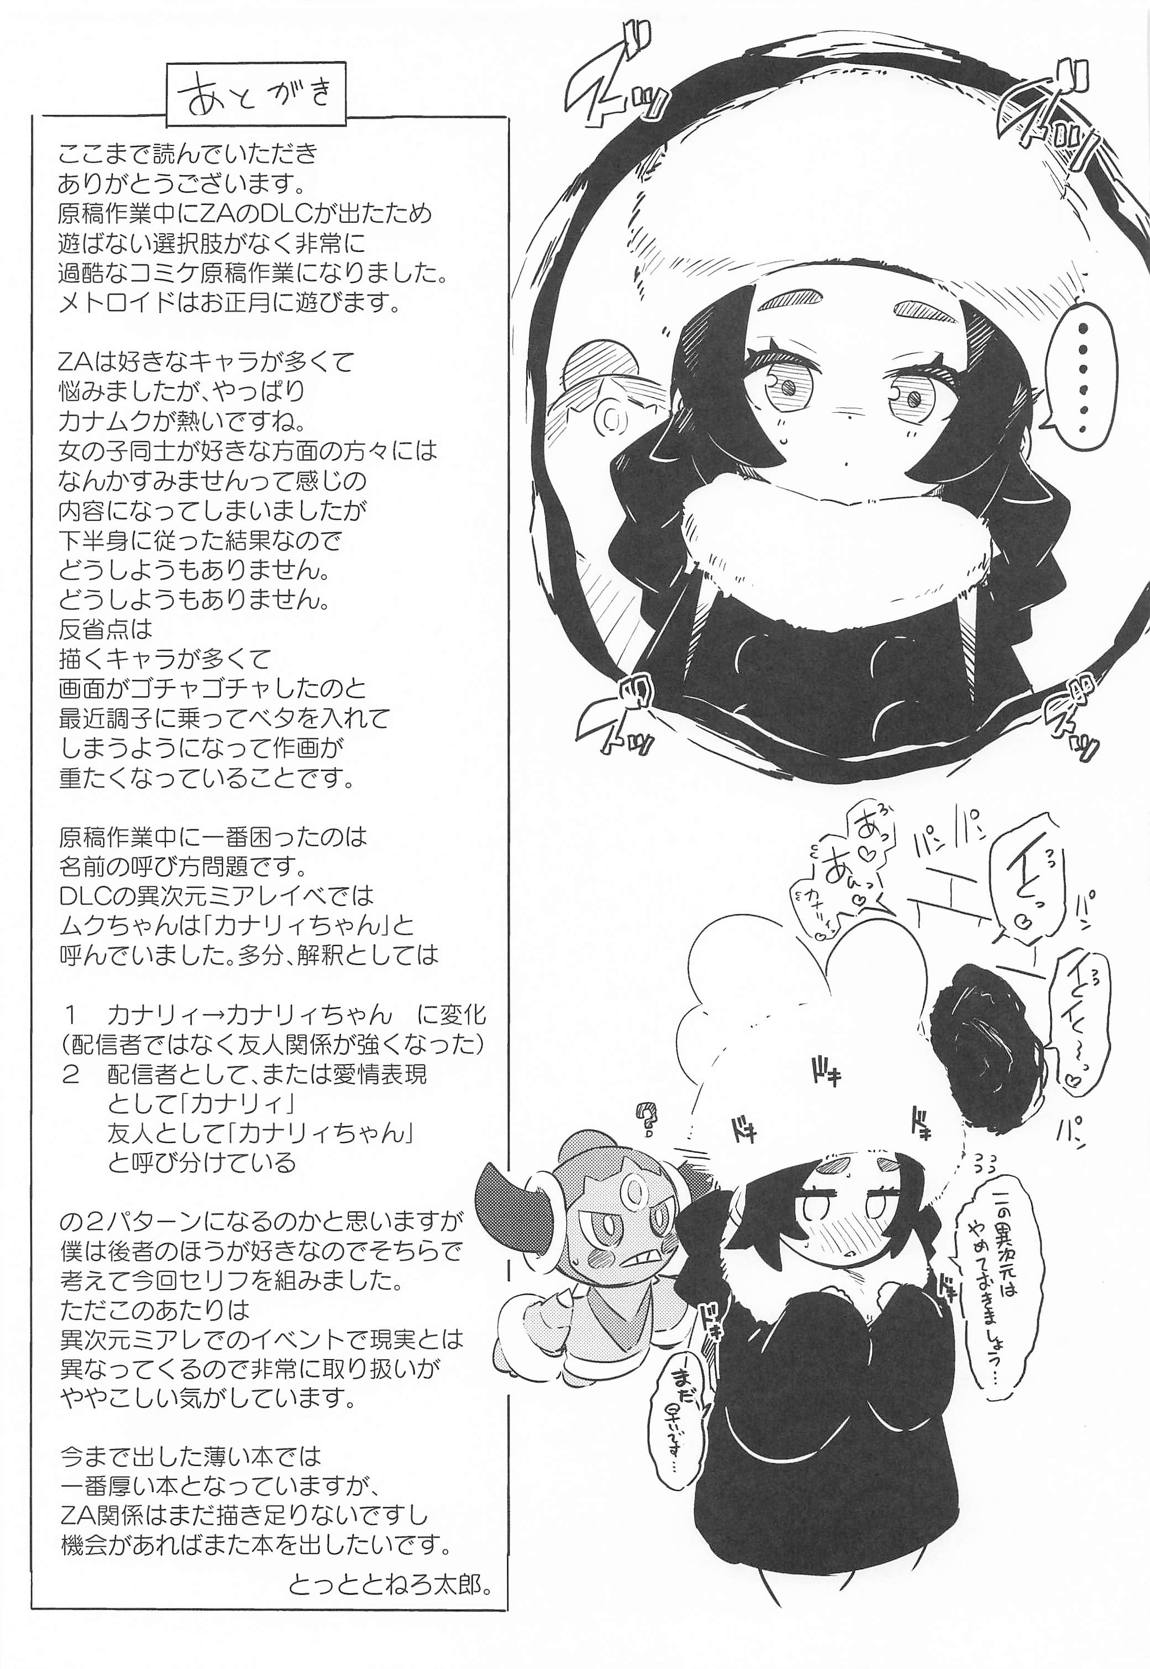 あとがき
ここまで読んでいただき
ありがとうございます。
原稿作業中にZAのDLCが出たため
遊ばない選択肢がなく非常に
過酷なコミケ原稿作業になりました。
メトロイドはお正月に遊びます。
ZAは好きなキャラが多くて
悩みましたが、やっぱり
カナムクが熱いですね。
女の子同士が好きな方面の方々には
なんかすみませんって感じの
内容になってしまいましたが
下半身に従った結果なので
どうしようもありません。
どうしようもありません。
反省点は
描くキャラが多くて
画面がゴチャゴチャしたのと
最近調子に乗ってベタを入れて
しまうようになって作画が
重たくなっていることです。
原稿作業中に一番困ったのは
名前の呼び方問題です。
DLCの異次元ミアレイベでは
ムクちゃんは「カナリィちゃん」と
呼んでいました。多分、解釈としては
１　カナリィ→カナリィちゃん　に変化
（配信者ではなく友人関係が強くなった）
２　配信者として、または愛情表現
として「カナリィ」
友人として「カナリィちゃん」
と呼び分けている
の２パターンになるのかと思いますが
僕は後者のほうが好きなのでそちらで
考えて今回セリフを組みました。
ただこのあたりは
異次元ミアレでのイベントで現実とは
異なってくるので非常に取り扱いが
ややこしい気がしています。
今まで出した薄い本では
一番厚い本となっていますが、
ZA関係はまだ描き足りないですし
機会があればまた本を出したいです。
とっととねろ太郎。
この異次元は
やめておきましょう…
まだ
早いです…